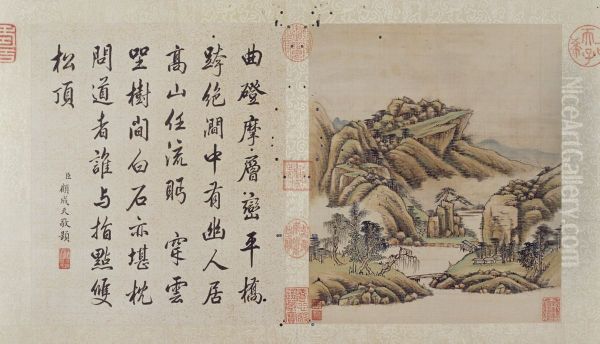 曲磴摩層巒平橋
跨絶澗中有幽人居
高山任流眄穿雲
坐樹間白石亦堪枕
問道者誰与指點雙
松頂
臣顧成天敬題
NiceArtGallery.com